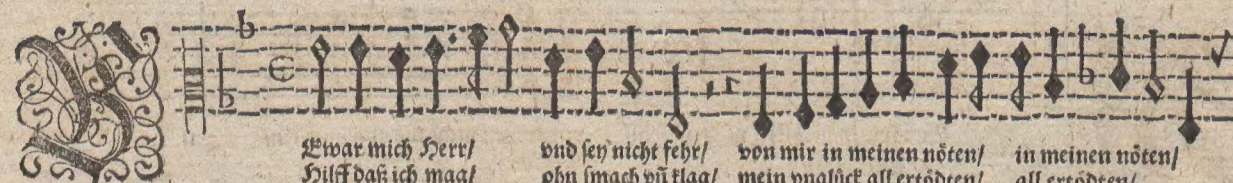 BEwar mich Herr/ vnd sey nicht fehr/ von mir in meinen nöten/ in meinen nöten/
Hilff daß ich mag/ ohn smach vñ klag/ mein vnglück all ertödten/ all ertödten/